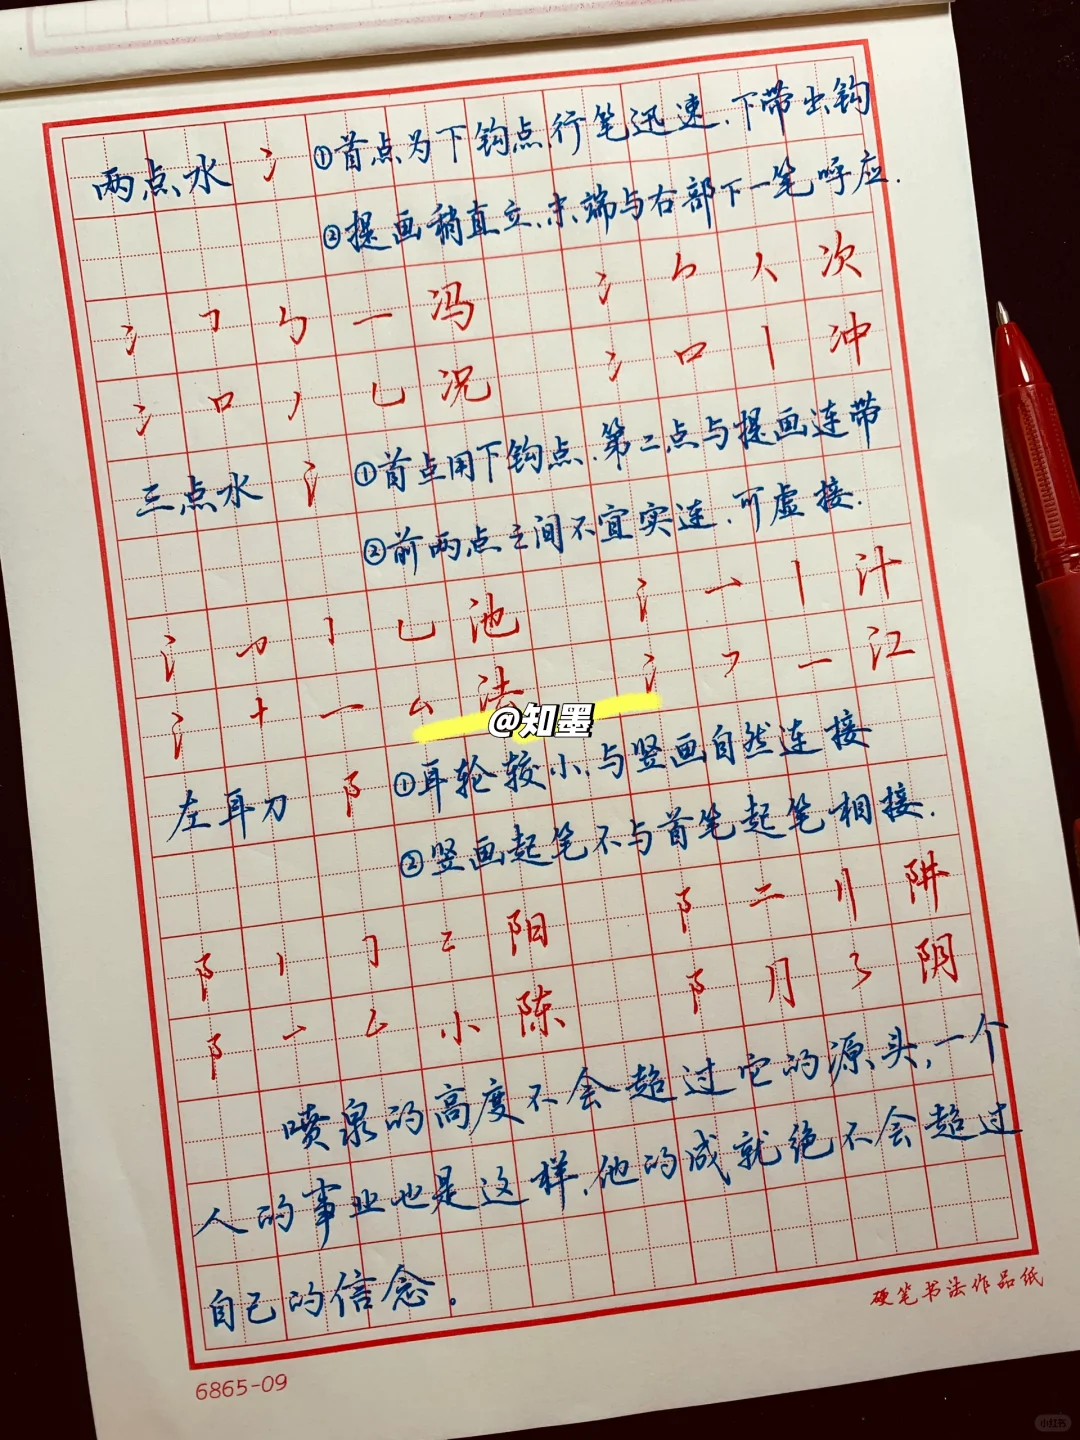 两点水 冫 ①首点为下钩点,行笔迅速,下带出钩
②提画稍直立,末端与右部下一笔呼应.
冫 一 冯 冫 人 次
冫 口 丿 乚 况 冫 口 丨 冲
三点水 氵 ①首点用下钩点,第二点与提画连带
②前两点之间不宜实连,可虚接.
氵 丨 乚 池 氵 一 丨 汁
氵 十 一 厶 法 氵 一 江
@知墨
左耳刀 阝 ①耳轮较小,与竖画自然连接
②竖画起笔不与首笔起笔相接.
阝 丨 阳 阝 二 阱
阝 一 小 陈 阝 阴
喷泉的高度不会超过它的源头,一个
人的事业也是这样,他的成就绝不会超过
自己的信念.
硬笔书法作品纸
6865-09
小红书